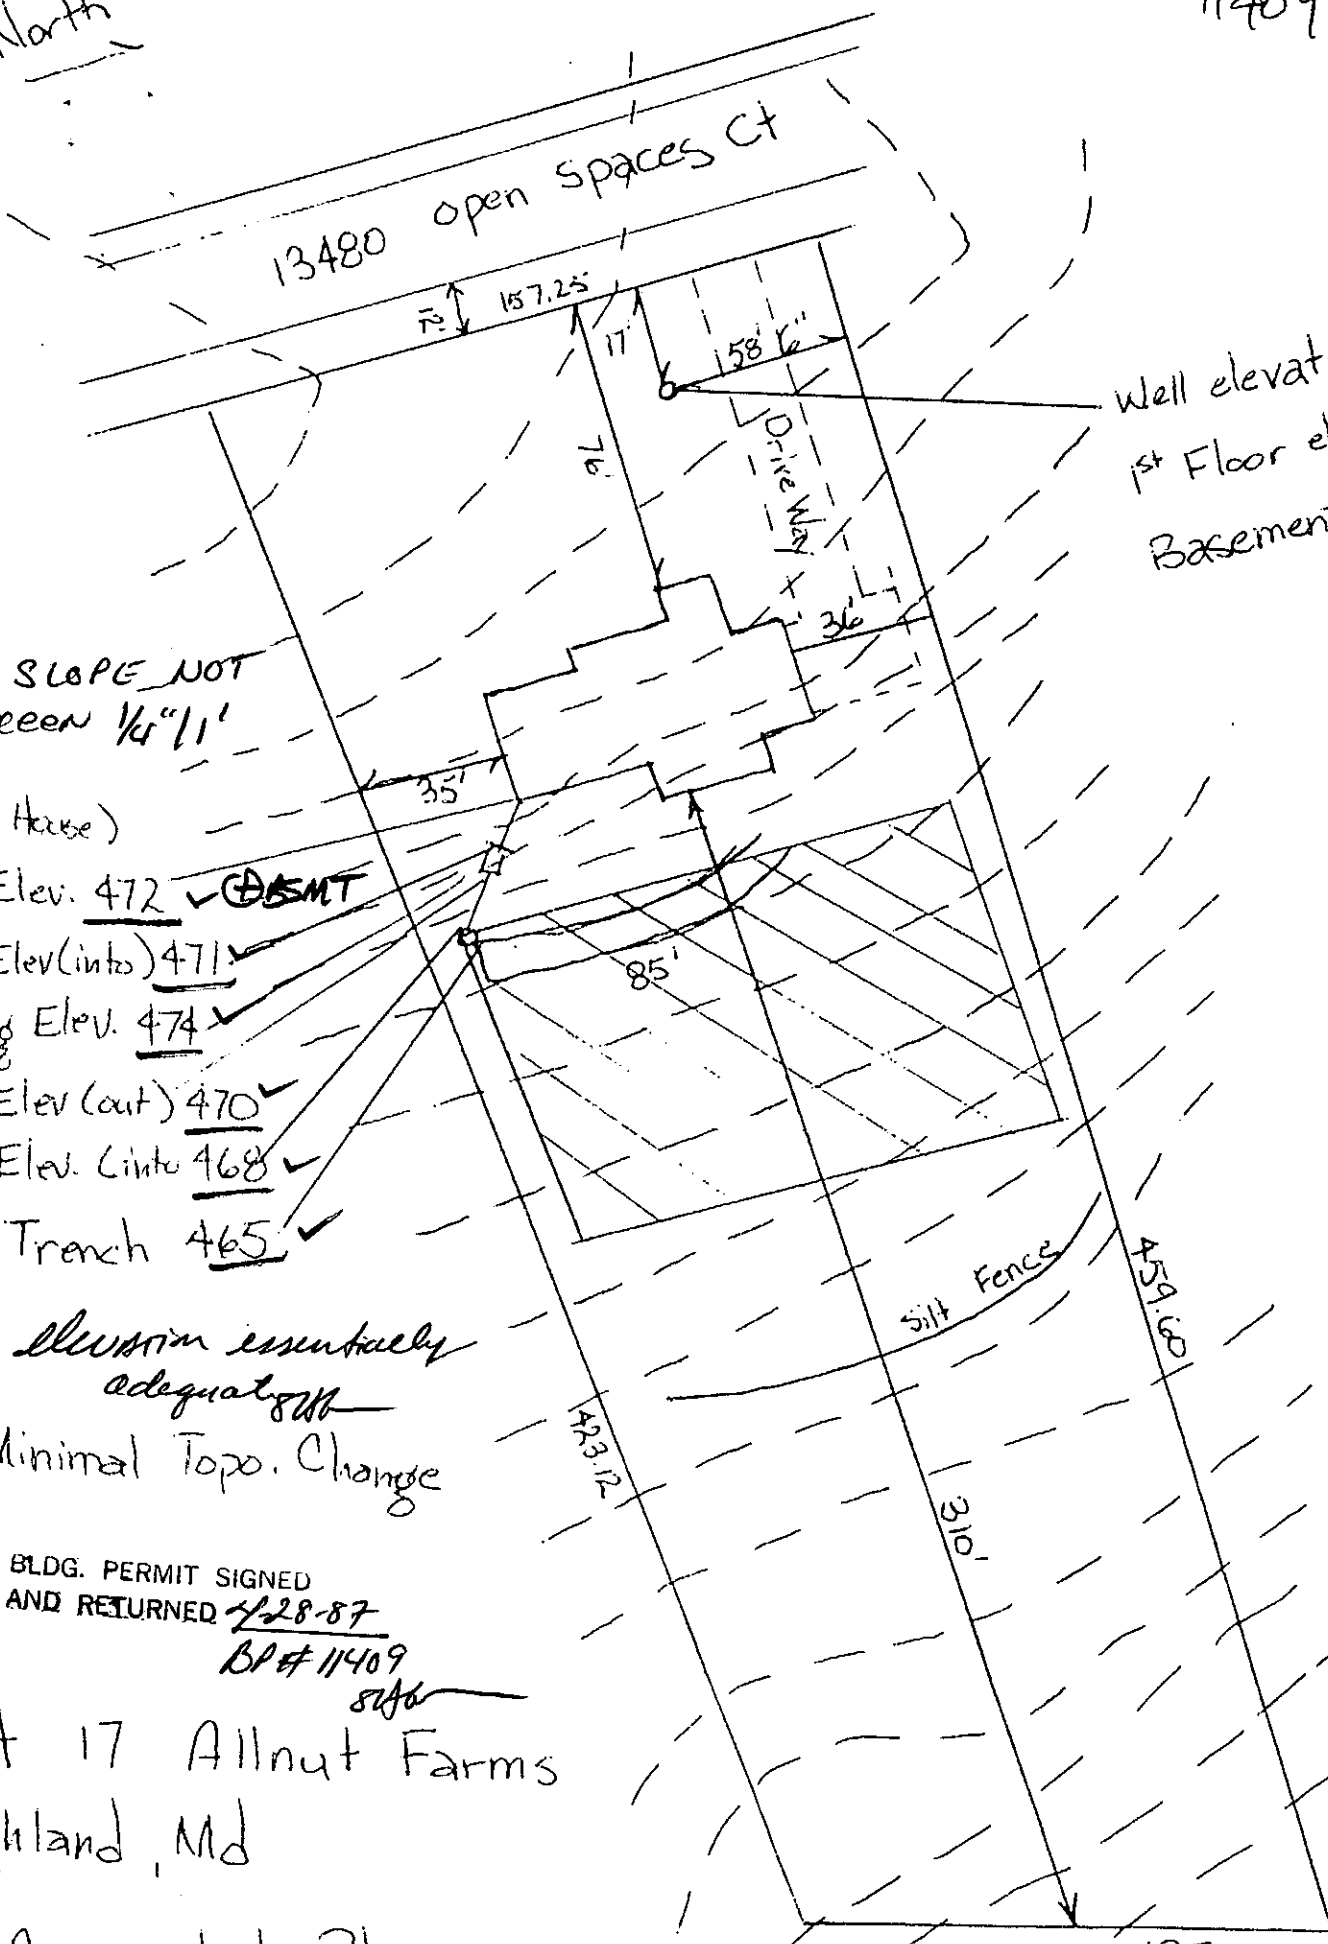 North
11409
13480 open spaces Ct
157.25
12'
17'
58' 6"
76'
Drive Way
Well elevat
1st Floor el
Basemen
36'
SLOPE NOT
1/4"/1'
35'
House)
Elev. 472 BSMT
Elev(into) 471
Elev. 474
Elev (out) 470
Elev. (into 468
Trench 465
85'
Silt Fence
459.60
elevation essentially
adequate
Minimal Topo. Change
423.12
310'
BLDG. PERMIT SIGNED
AND RETURNED 4-28-87
BP# 11409
17 Allnut Farms
hland, Md